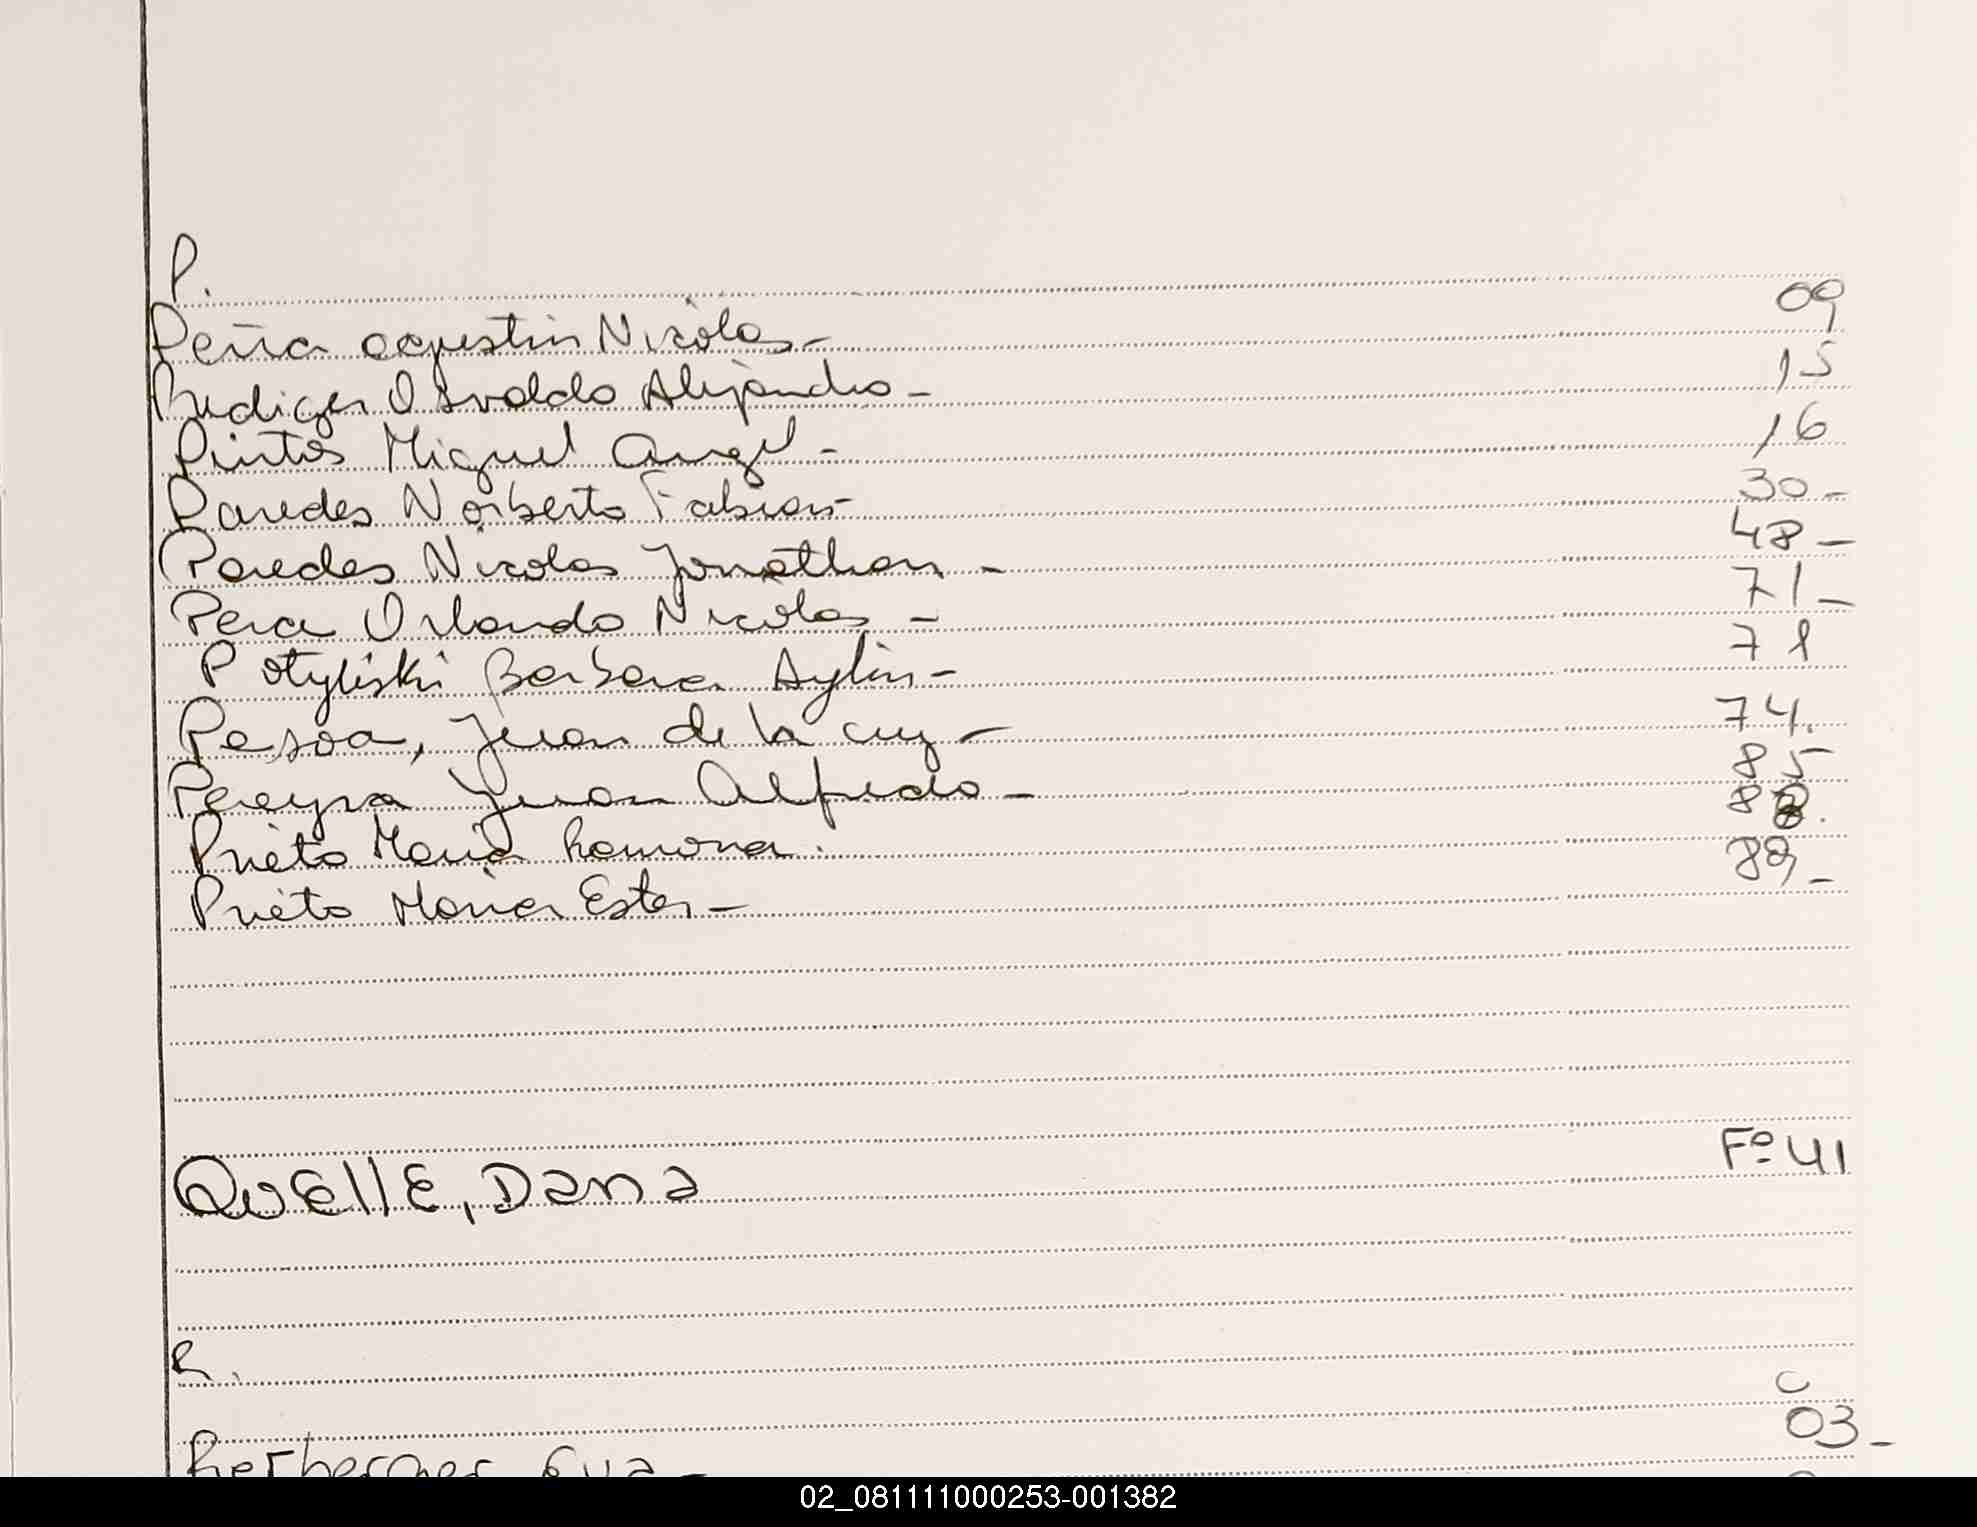 P.
Peña agustin Nicolas - 09
Rudiger Osvaldo Alejandro - 15
Pintos Miguel Angel - 16
Paredes Norberto Fabian - 30 -
Paredes Nicolas Jonathan - 48 -
Pera Orlando Nicolas - 71 -
Potyliski Barbara Aylin - 71
Pesoa, Juan de la cruz - 74.
Pereyra Juan Alfredo - 85
Prieto Maria Ramona.
Prieto Maria Ester - 89 -
QuEllE, Dana Fº 41
R.
Eva - 03 -
02_081111000253-001382